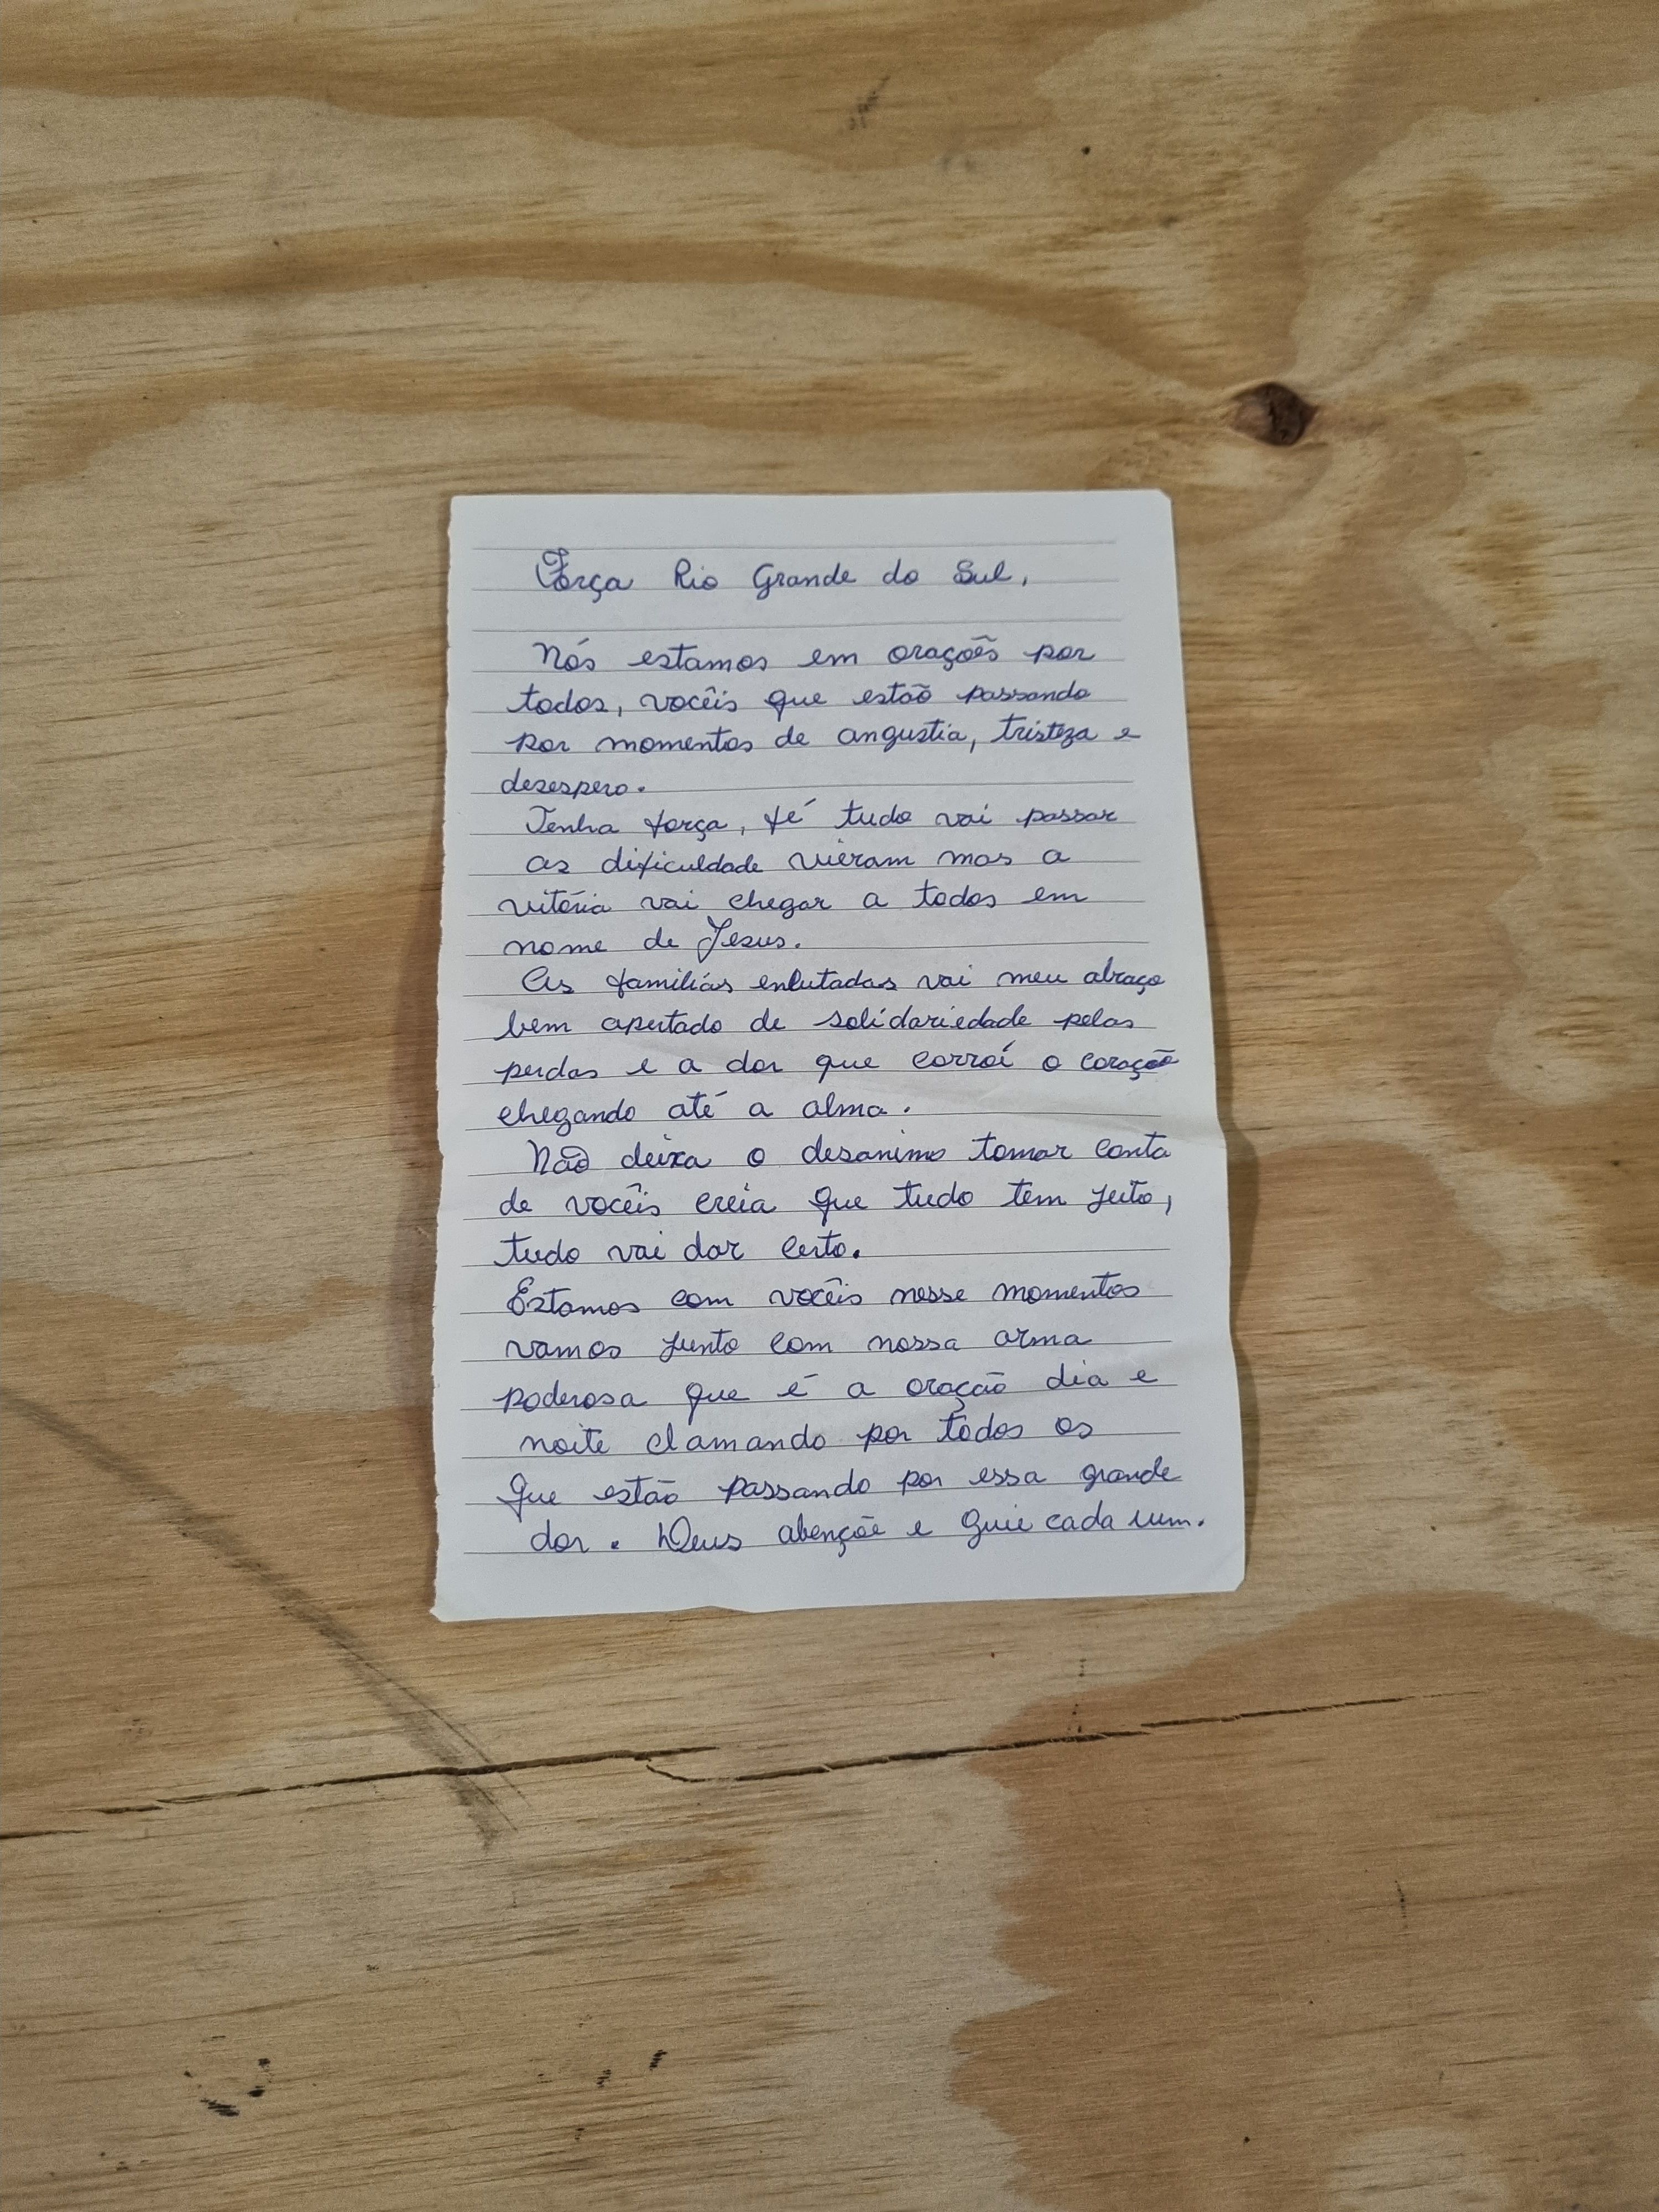 Força Rio Grande do Sul,
Nós estamos em orações por
todos, vocêis que estão passando
por momentos de angustia, tristeza e
desespero.
Tenha força, fé tudo vai passar
as dificuldade vieram mas a
vitória vai chegar a todos em
nome de Jesus.
As familías enlutadas vai meu abraço
bem apertado de solidariedade pelas
perdas e a dor que corroí o coração
chegando até a alma.
Não deixa o desanimo tomar conta
de vocêis creia que tudo tem jeito,
tudo vai dar certo.
Estamos com vocêis nesse momentos
vamos junto com nossa arma
poderosa que é a oração dia e
noite clamando por todos os
que estão passando por essa grande
dor. Deus abençõe e guie cada um.